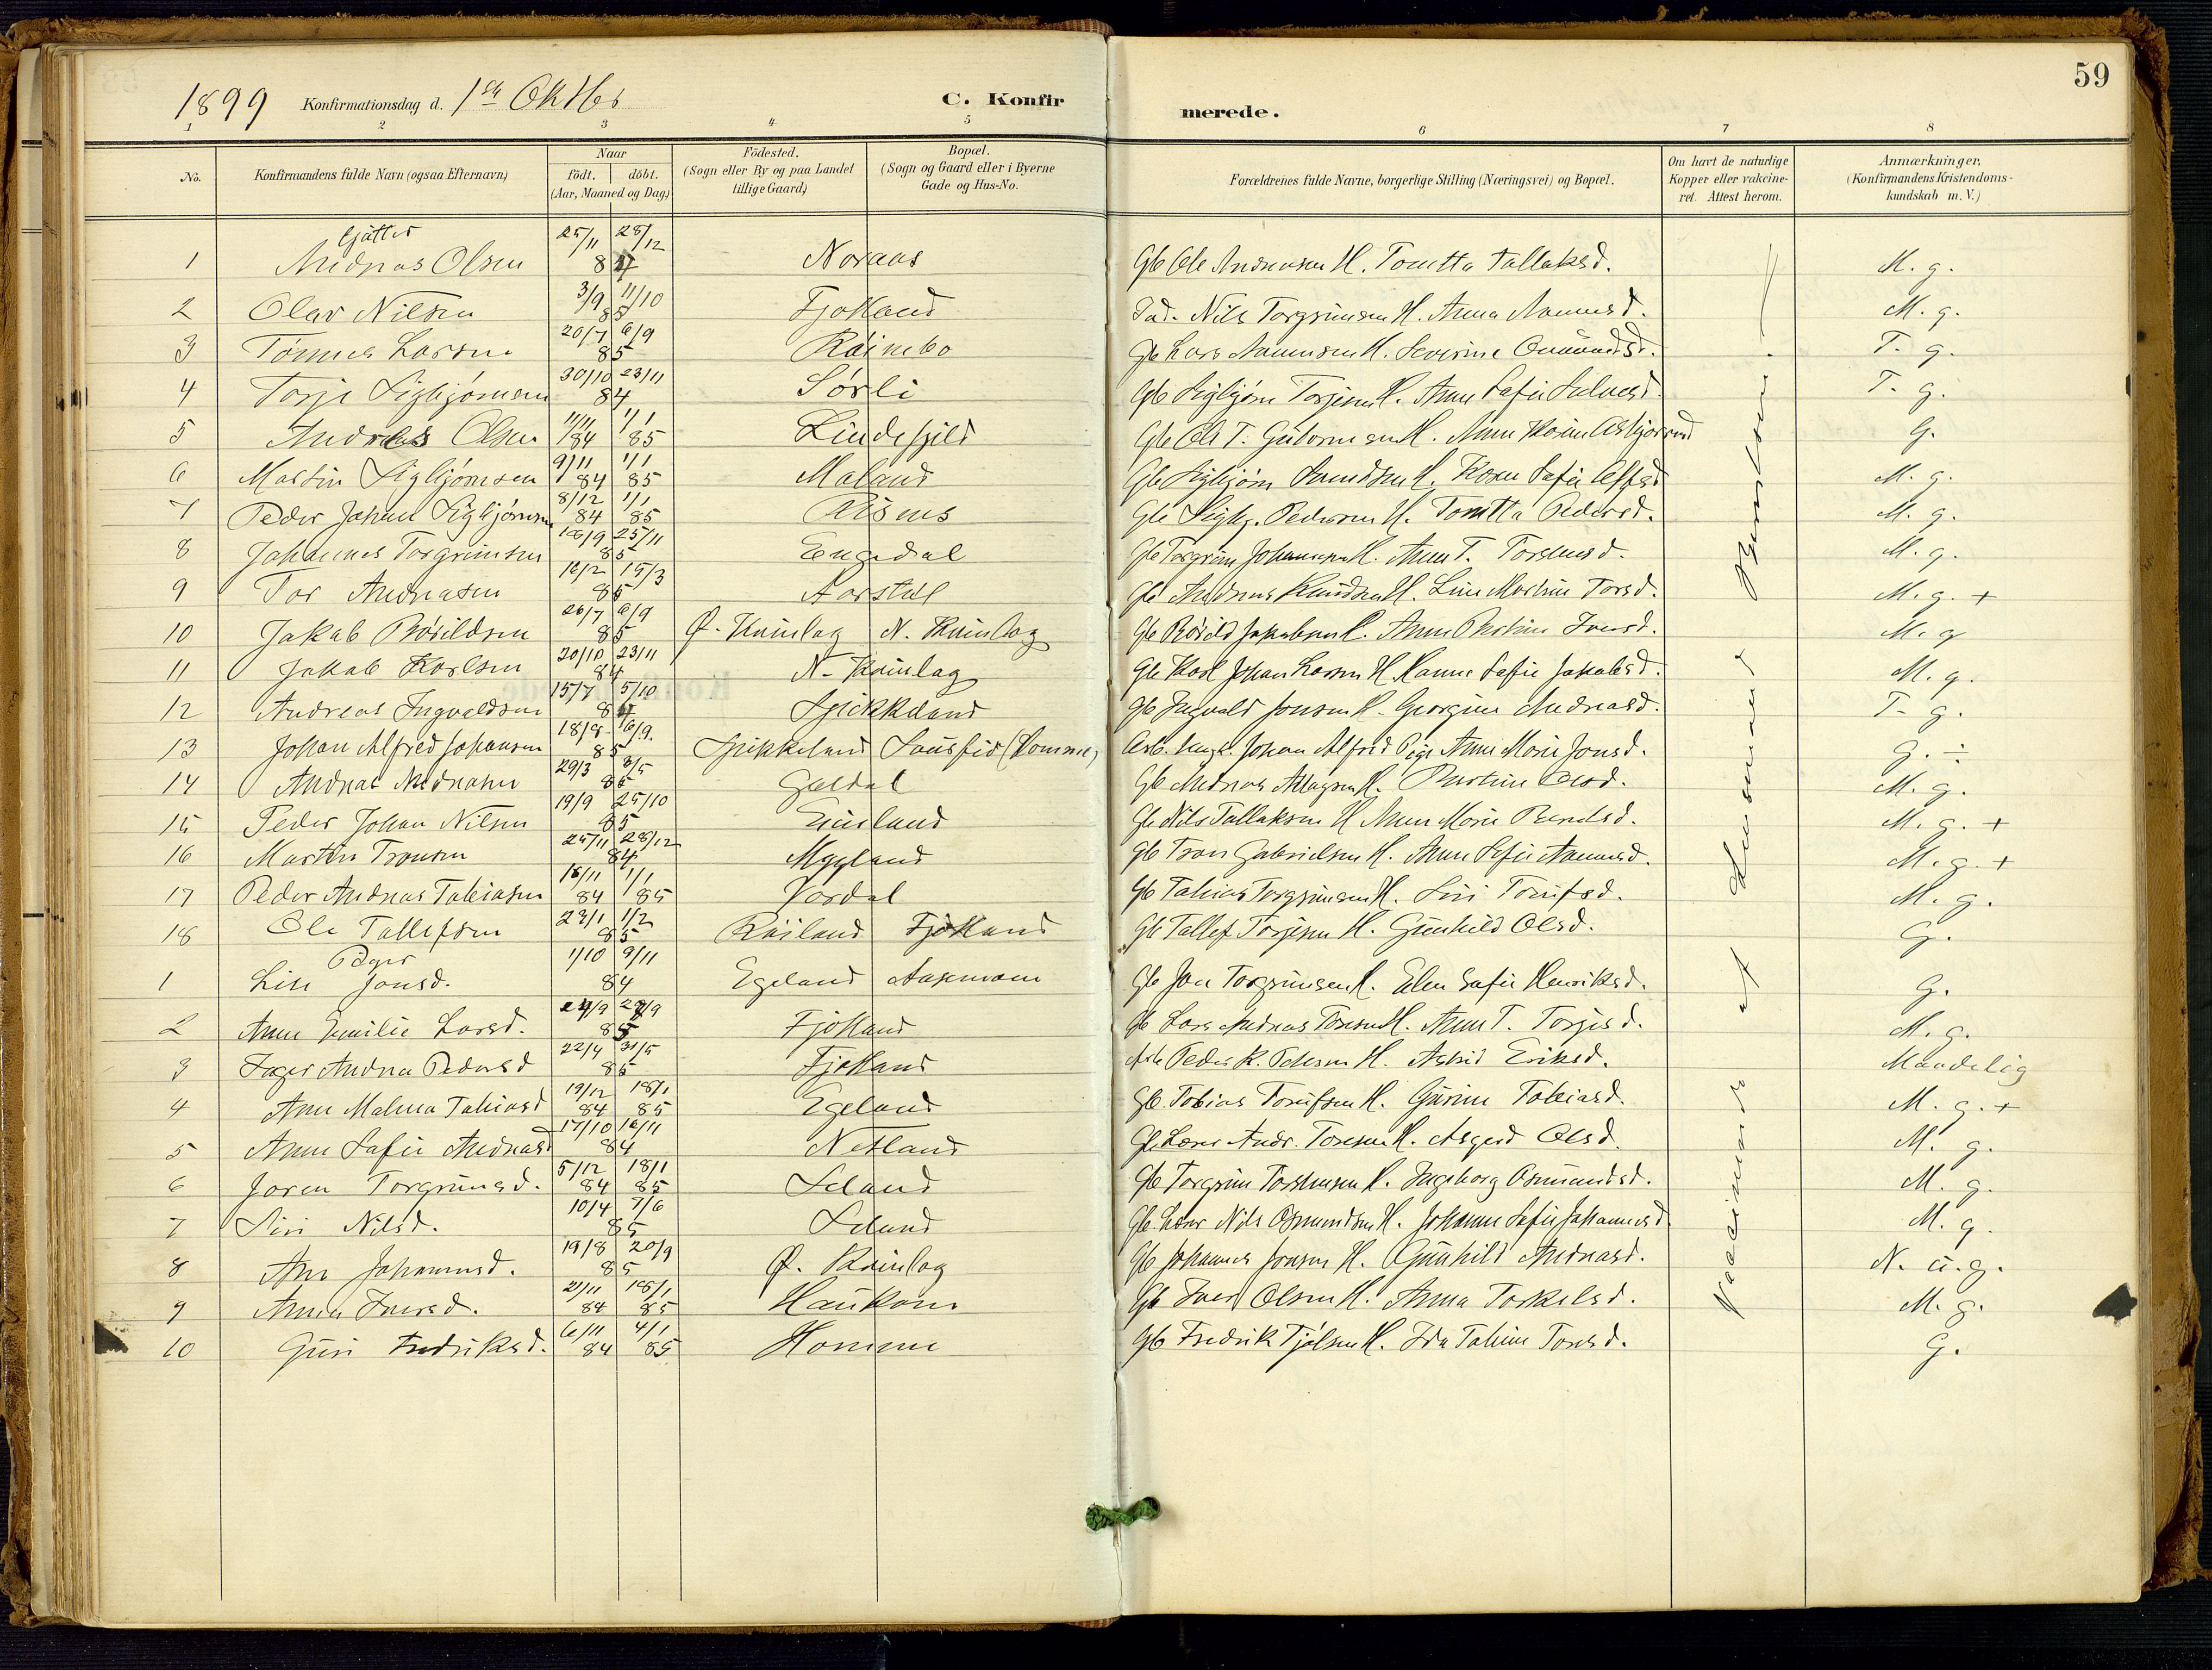 59
1899 Konfirmationsdag d. 1ste Oktbr C. Konfirmerede.
1 2 3 4 5 6 7 8
No. Konfirmandens fulde Navn (ogsaa Efternavn) Naar født. døbt. (Aar, Maaned og Dag) Fødested. (Sogn eller By og paa Landet tillige Gaard) Bopæl. (Sogn og Gaard eller i Byerne Gade og Hus-No. Forældrenes fulde Navne, borgerlige Stilling (Næringsvei) og Bopæl. Om havt de naturlige Kopper eller vakcineret. Attest herom. Anmærkninger. (Konfirmandens Kristendomskundskab m. V.)
Gjutter
1 Andreas Olsen 25/11 28/12 84 Noraas Gb Ole Andreasen H. Tomitta Tallaksd. M. g.
2 Olav Nilsen 3/9 11/10 85 Fjotland Nils Torgrimsen H. Anna Aanensd. M. g.
3 Tønnes Larsen 20/7 6/9 85 Røinebo Gb Lars Aanensen H. Severine Gunuldsd. T. g.
4 Torje Sigbjørnsen 30/10 23/11 84 Sørli Gb Sigbjørn Torjesen H. Anne Sofie Salvesd. T. g.
5 Andreas Olsen 11/11 84 1/1 85 Lindefjeld Gb Ole T. Guttormsen H. Anne Karine Asbjørnsd G.
6 Martin Sigbjørnsen 9/11 84 1/1 85 Moland Gb Sigbjørn H. Karen Sofie M. g.
7 Peder Johan Sigbjørnsen 8/12 84 1/1 85 Risnes Gb Sigbj. Pedersen H. Tomitta Pedersd. M. g.
8 Johannes Torgrimsen 18/9 25/11 85 Engedal Gb Torgrim Johannesen H. Anne T. Torsteinsd. M. g.
9 Tor Andreasen 16/2 15/3 85 Aarstøl Gb Andreas Knudsen H. Line Martine Torsd. M. g. +
10 Jakob Røsildsen 26/7 6/9 85 Ø. Kvinlog N. Kvinlog Gb Røsild Jakobsen H. Anne Kirstine Iversd. M. g
11 Jakob Karlsen 20/10 23/11 84 N. Kvinlog Gb Karl Johan Larsen H. Hanne Sofie Jakobsd. M. g.
12 Andreas Ingvaldsen 15/7 5/10 84 Spikkeland Gb Ingvald Jonsen H. Georgine Andreasd. T. g.
13 Johan Alfred Johansen 18/8 6/9. 85 Spikkeland (Homme) Arb. Ungk. Johan Alfred Pige Anne Marie Jonsd. G. ÷
14 Andreas Andreasen 29/3 8/5 85 Galdal Gb Andreas Atlagsen H. Kirstine Olsd. M. g.
15 Peder Johan Nilsen 19/9 25/10 85 Eiesland Gb Nils Tallaksen H Anne Marie Berntsd. M. g. +
16 Martin Tronsen 25/11 28/12 84 Mygland Gb Tron Gabrielsen H. Anne Sofie Aanensd. M. g. +
17 Peder Andreas Tobiasen 18/11 84 1/1 85 Vordal Gb Tobias Torgrimsen H. Siri Torufsd. M. g.
18 Ole Tallefsen 23/1 1/2 85 Røiland Fjotland Gb Tallef Torjesen H. Gunhild Olsd. G.
Piger
1 Lise Jonsd. 1/10 9/11 84 Egeland Aasmoen Gb Jon Torgrimsen H. Elen Sofie Henriksd. G.
2 Anne Emilie Larsd. 24/9 27/9 85 Fjotland Gb Lars Andreas Toresen H. Anne T. Torjesd. M. g.
3 Inger Andrea Pedersd 22/4 31/5 85 Fjotland Arb Peder K. Pedersen H. Astrid Eriksd. Maadelig
4 Anne Malena Tobiasd 19/12 84 18/1 85 Egeland Gb. Tobias Torufsen H. Gurine Tobiasd. M. g. +
5 Anne Sofie Andreasd 17/10 16/11 84 Netland Gb. Lærer Andr. Toresen H. Asgerd Olsd. M. g.
6 Joren Torgrimsd. 5/12 84 18/1 85 Seland Gb Torgrim Torsteinsen H. Ingeborg Osmundsd. M. g.
7 Siri Nilsd. 10/4 7/6 85 Seland Gb. Lærer Nils Osmundsen H. Johanne Sofie Johannesd M. g.
8 Ane Johannesd. 19/8 20/9 85 Ø. Kvinlog Gb Johannes Jonsen H. Gunhild Andreasd. N. u. g.
9 Anna Iversd. 21/11 84 18/1 85 Haukom Gb Iver Olsen H. Anna Torkelsd. M. g.
10 Guri Fredriksd. 6/11 84 4/1 85 Homme Gb Fredrik Tjølsen H. Ida Tobine Toresd. G.
Vaccinerede